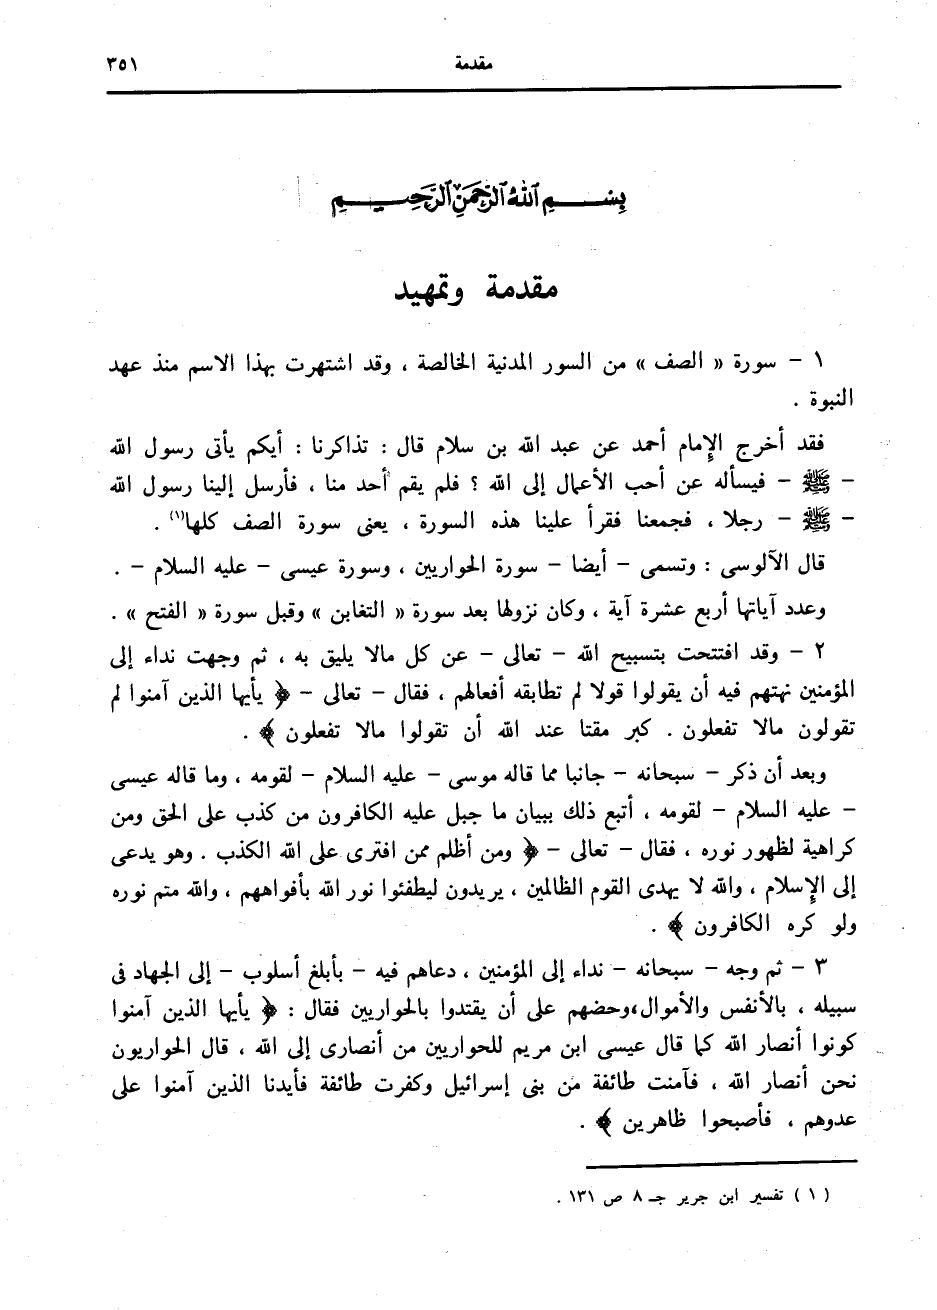 مقدمة ٣٥١
بِسْمِ اللَّهِ الرَّحْمَنِ الرَّحِيمِ
مقدمة وتمهيد
١ – سورة « الصف » من السور المدنية الخالصة ، وقد اشتهرت بهذا الاسم منذ عهد
النبوة .
فقد أخرج الإمام أحمد عن عبد الله بن سلام قال : تذاكرنا : أيكم يأتى رسول الله
– ﷺ – فيسأله عن أحب الأعمال إلى الله ؟ فلم يقم أحد منا ، فأرسل إلينا رسول الله
– ﷺ – رجلا ، فجمعنا فقرأ علينا هذه السورة ، يعنى سورة الصف كلها(١) .
قال الآلوسى : وتسمى – أيضا – سورة الحواريين ، وسورة عيسى – عليه السلام – .
وعدد آياتها أربع عشرة آية ، وكان نزولها بعد سورة « التغابن » وقبل سورة « الفتح » .
٢ – وقد افتتحت بتسبيح الله – تعالى – عن كل مالا يليق به ، ثم وجهت نداء إلى
المؤمنين نهتهم فيه أن يقولوا قولا لم تطابقه أفعالهم ، فقال – تعالى – ﴿ يأيها الذين آمنوا لم
تقولون مالا تفعلون . كبر مقتا عند الله أن تقولوا مالا تفعلون ﴾ .
وبعد أن ذكر – سبحانه – جانبا مما قاله موسى – عليه السلام – لقومه ، وما قاله عيسى
– عليه السلام – لقومه ، أتبع ذلك ببيان ما جبل عليه الكافرون من كذب على الحق ومن
كراهية لظهور نوره ، فقال – تعالى – ﴿ ومن أظلم ممن افترى على الله الكذب . وهو يدعى
إلى الإسلام ، والله لا يهدى القوم الظالمين ، يريدون ليطفئوا نور الله بأفواههم ، والله متم نوره
ولو كره الكافرون ﴾ .
٣ – ثم وجه – سبحانه – نداء إلى المؤمنين ، دعاهم فيه – بأبلغ أسلوب – إلى الجهاد فى
سبيله ، بالأنفس والأموال،وحضهم على أن يقتدوا بالحواريين فقال : ﴿ يأيها الذين آمنوا
كونوا أنصار الله كما قال عيسى ابن مريم للحواريين من أنصارى إلى الله ، قال الحواريون
نحن أنصار الله ، فآمنت طائفة من بنى إسرائيل وكفرت طائفة فأيدنا الذين آمنوا على
عدوهم ، فأصبحوا ظاهرين ﴾ .
( ١ ) تفسير ابن جرير جـ ٨ ص ١٣١ .